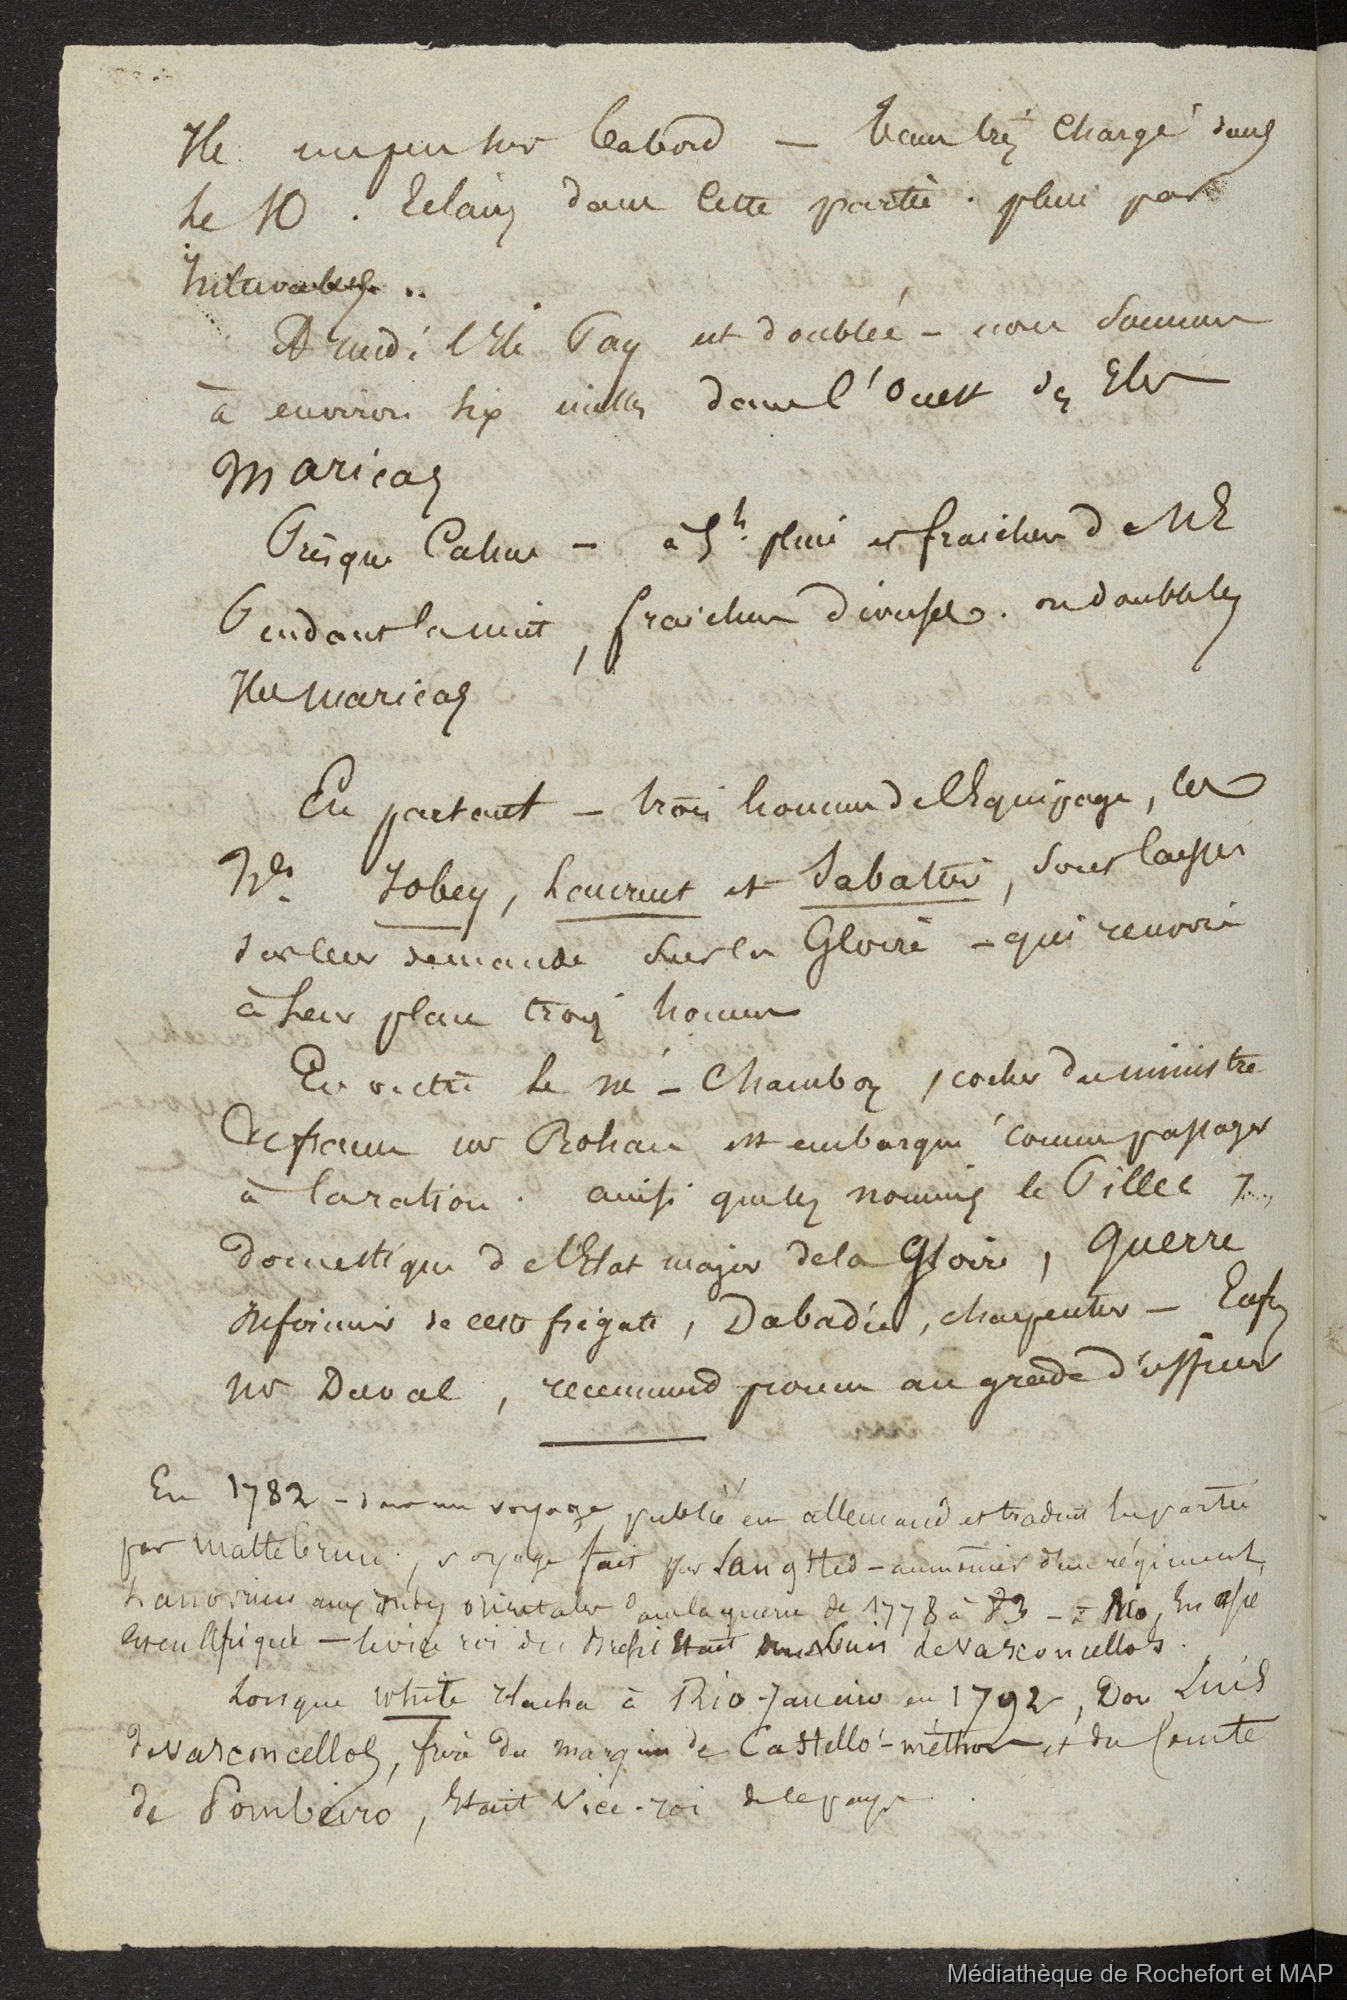 Ile un peu sur babord — temps très chargé dans
le SO. Eclairs dans cette partie. pluie par
Intervalles..
A midi l'Ile Pay est doublée — nous sommes
à environ six milles dans l'Ouest des Iles
Maricas
Présque Calme — à 5h. pluie et fraicheur de NE
Pendant la nuit, fraicheur diverses. on double les
Iles maricas
En partant — trois hommes de l'Equipage, les
Nés. Jobey, Laurent et Sabatier, sont laissés
sur leur demande sur la Gloire — qui renvoie
à leur place trois hommes
En outre le né — Chambon, cocher du ministre
de france mr Rohan est embarqué comme passager
à la ration. ainsi que les nommés le Pillec
domestique de l'Etat major de la Gloire, Guerre
Infirmier de cette frégate, Dabadie, charpentier — Enfin
mr Duval, recemment promu au grade d'officier
En 1782 — dans un voyage publié en allemand et traduit en partie
par Maltebrun, voyage fait par Langsted — aumonier d'un régiment
hanovrien aux Indes orientales dans la guerre de 1778 à 83 — à Rio, En asie
et en Afrique — le vice roi du Brésil Etait Luis de vasconcellos.
Lorsque White relacha à Rio-Janeiro en 1792, Don Luis
de vasconcellos, frère du marquis de Castello-melhor et du Comte
de Pombeiro, Etait vice-roi de le pays.
Médiathèque de Rochefort et MAP